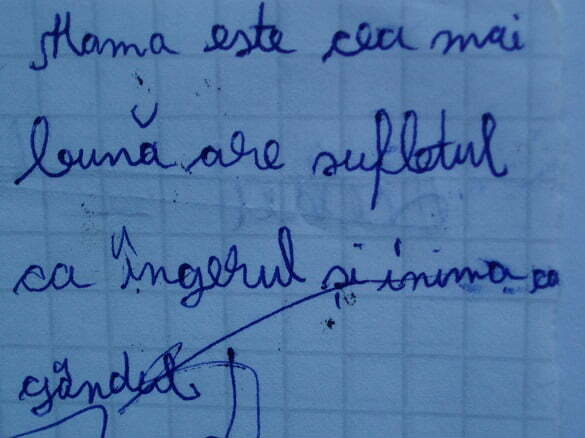 Mama este cea mai
bună are sufletul
ca îngerul și inima ca
gândul